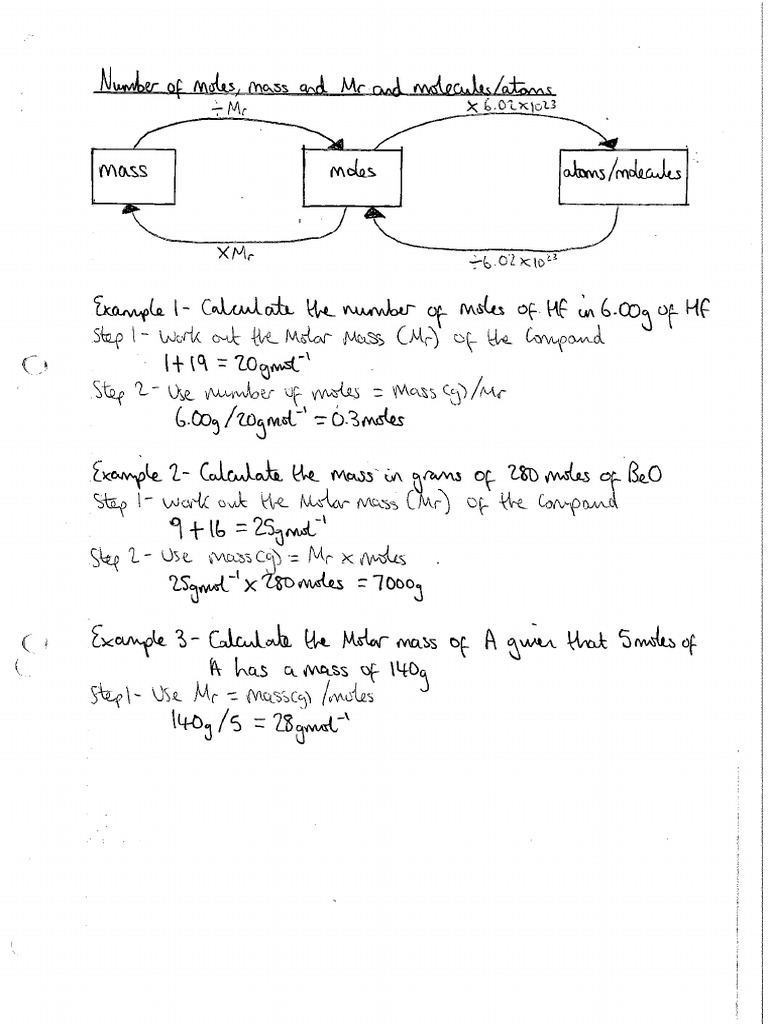 Number of moles, mass and Mr and molecules/atoms
÷Mr
×6.02×10²³
mass
moles
atoms/molecules
×Mr
÷6.02×10²³
Example 1- Calculate the number of moles of HF in 6.00g of HF
Step 1- Work out the Molar Mass (Mr) of the Compound
1+19 = 20gmol⁻¹
Step 2- Use number of moles = Mass(g)/Mr
6.00g/20gmol⁻¹ = 0.3moles
Example 2- Calculate the mass in grams of 280 moles of BeO
Step 1- Work out the Molar mass (Mr) of the Compound
9+16 = 25gmol⁻¹
Step 2- Use mass(g) = Mr × moles
25gmol⁻¹ × 280moles = 7000g
Example 3- Calculate the Molar mass of A given that 5moles of
A has a mass of 140g
Step1- Use Mr = mass(g) /moles
140g/5 = 28gmol⁻¹